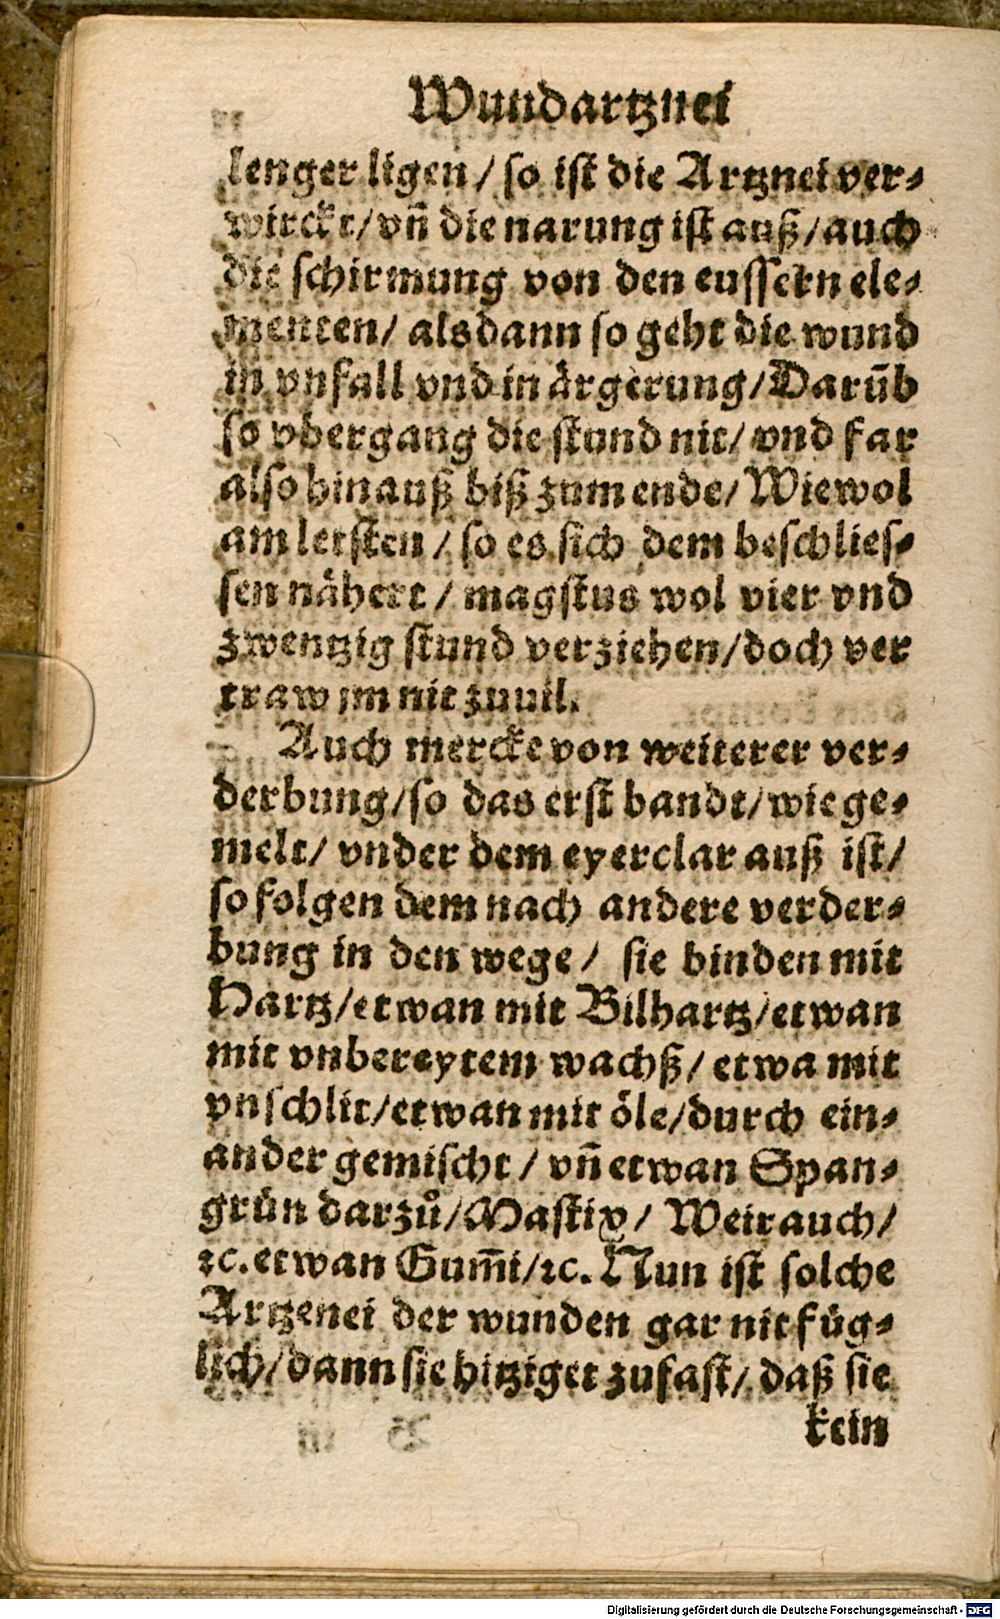 Wundartznei
lenger ligen / so ist die Artznei ver⸗
wirckt/ vn̄ die narung ist auß/ auch
die schirmung von den eussern ele⸗
menten/ als dann so geht die wund
in vnfall vnd in ärgerung/ Darūb
so vbergang die stund nit/ vnd far
also hinauß biß zum ende/ Wiewol
am letsten / so es sich dem beschlies⸗
sen nähert / magstus wol vier vnd
zwentzig stund verziehen/ doch ver
traw jm nit zuuil.
Auch mercke von weiterer ver⸗
derbung/ so das erst bandt/ wie ge⸗
melt/ vnder dem eyerclar auß ist/
so folgen dem nach andere verder⸗
bung in den wege / sie binden mit
Hartz/ etwan mit Bilhartz/ etwan
mit vnbereytem wachß/ etwa mit
vnschlit/ etwan mit öle/ durch ein⸗
ander gemischt / vn̄ etwan Span⸗
grün darzů/ Mastix/ Weirauch/
ꝛc. etwan Gum̄i/ ꝛc. Nun ist solche
Artzenei der wunden gar nit füg⸗
lich/ dann sie hitziget zufast/ daß sie
kein
Digitalisierung gefördert durch die Deutsche Forschungsgemeinschaft - DFG